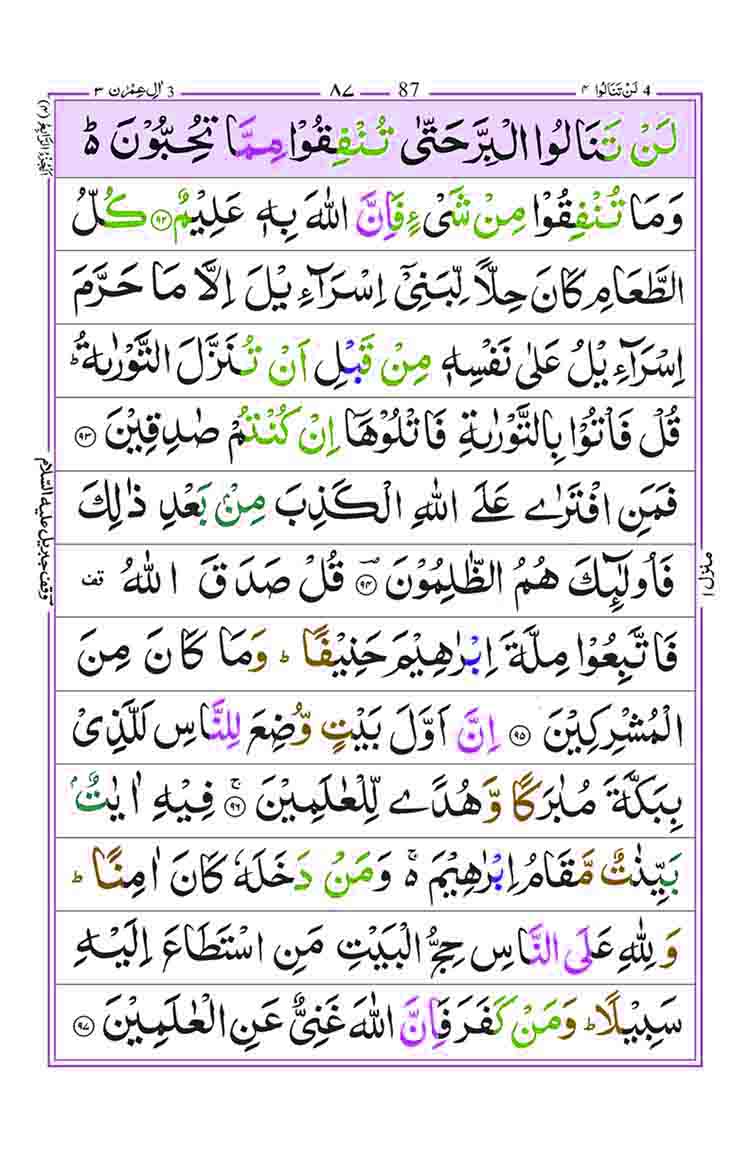 4 لَنْ تَنَالُوا ۴ 87 ۸۷ 3 اٰلِ عِمْرٰن ۳
لَنْ تَنَالُوا الْبِرَّ حَتّٰى تُنْفِقُوْا مِمَّا تُحِبُّوْنَ ؕ۬
وَمَا تُنْفِقُوْا مِنْ شَیْءٍ فَاِنَّ اللّٰهَ بِهٖ عَلِیْمٌ ﴿۹۲﴾ كُلُّ
الطَّعَامِ كَانَ حِلًّا لِّبَنِیْۤ اِسْرَآءِیْلَ اِلَّا مَا حَرَّمَ
اِسْرَآءِیْلُ عَلٰى نَفْسِهٖ مِنْ قَبْلِ اَنْ تُنَزَّلَ التَّوْرٰىةُ ؕ
قُلْ فَاْتُوْا بِالتَّوْرٰىةِ فَاتْلُوْهَاۤ اِنْ كُنْتُمْ صٰدِقِیْنَ ﴿۹۳﴾
فَمَنِ افْتَرٰى عَلَى اللّٰهِ الْكَذِبَ مِنْۢ بَعْدِ ذٰلِكَ
فَاُولٰٓىِٕكَ هُمُ الظّٰلِمُوْنَ ﴿۹۴﴾ قُلْ صَدَقَ اللّٰهُ قف
فَاتَّبِعُوْا مِلَّةَ اِبْرٰهِیْمَ حَنِیْفًا ؕ وَمَا كَانَ مِنَ
الْمُشْرِكِیْنَ ﴿۹۵﴾ اِنَّ اَوَّلَ بَیْتٍ وُّضِعَ لِلنَّاسِ لَلَّذِیْ
بِبَكَّةَ مُبٰرَكًا وَّهُدًى لِّلْعٰلَمِیْنَ ﴿۹۶﴾ فِیْهِ اٰیٰتٌۢ
بَیِّنٰتٌ مَّقَامُ اِبْرٰهِیْمَ ۚ۬ وَمَنْ دَخَلَهٗ كَانَ اٰمِنًا ؕ
وَلِلّٰهِ عَلَى النَّاسِ حِجُّ الْبَیْتِ مَنِ اسْتَطَاعَ اِلَیْهِ
سَبِیْلًا ؕ وَمَنْ كَفَرَ فَاِنَّ اللّٰهَ غَنِیٌّ عَنِ الْعٰلَمِیْنَ ﴿۹۷﴾
اَلْجُزْءُ الرَّابِعُ (۴)
وقف جبریل علیه السلام
منزل ۱